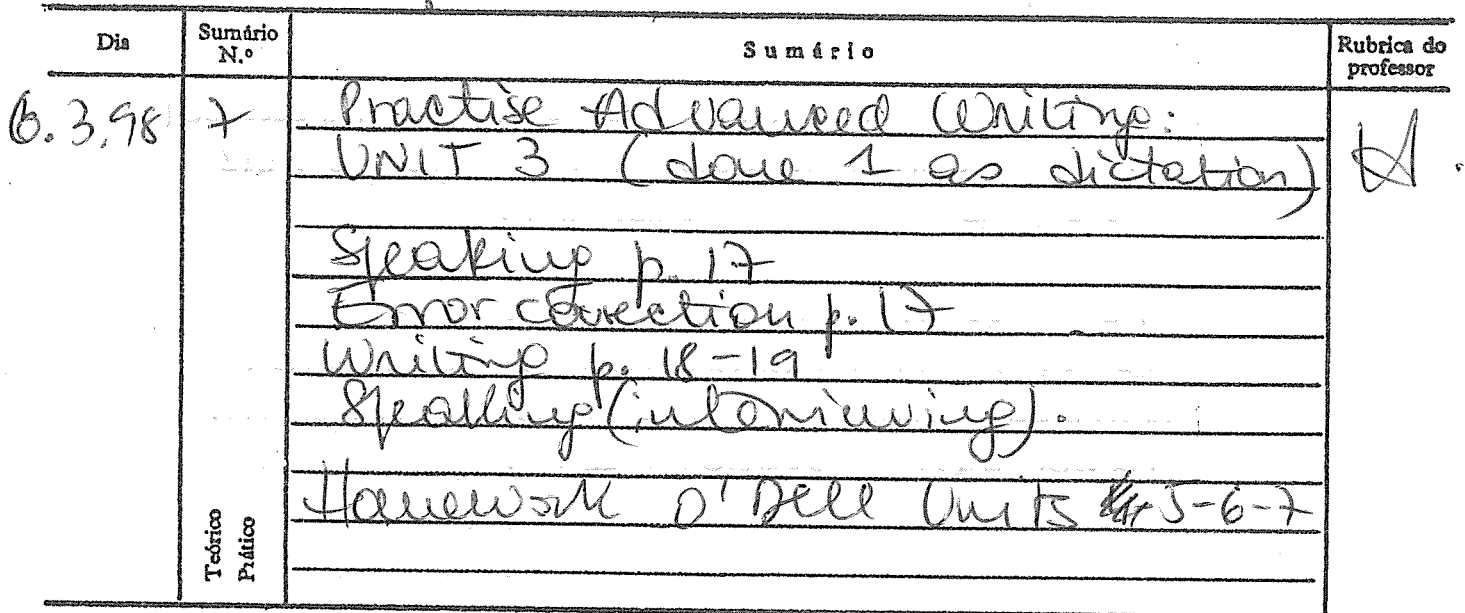 Dia Sumário N.º Sumário Rubrica do professor
6.3.98 7 Practise Advanced Writing:
UNIT 3 (done 1 as dictation)
Speaking p. 17
Error correction p. 17
Writing p. 18-19
Speaking (interviewing).
Homework O'Dell Units 5-6-7
Teórico
Prático